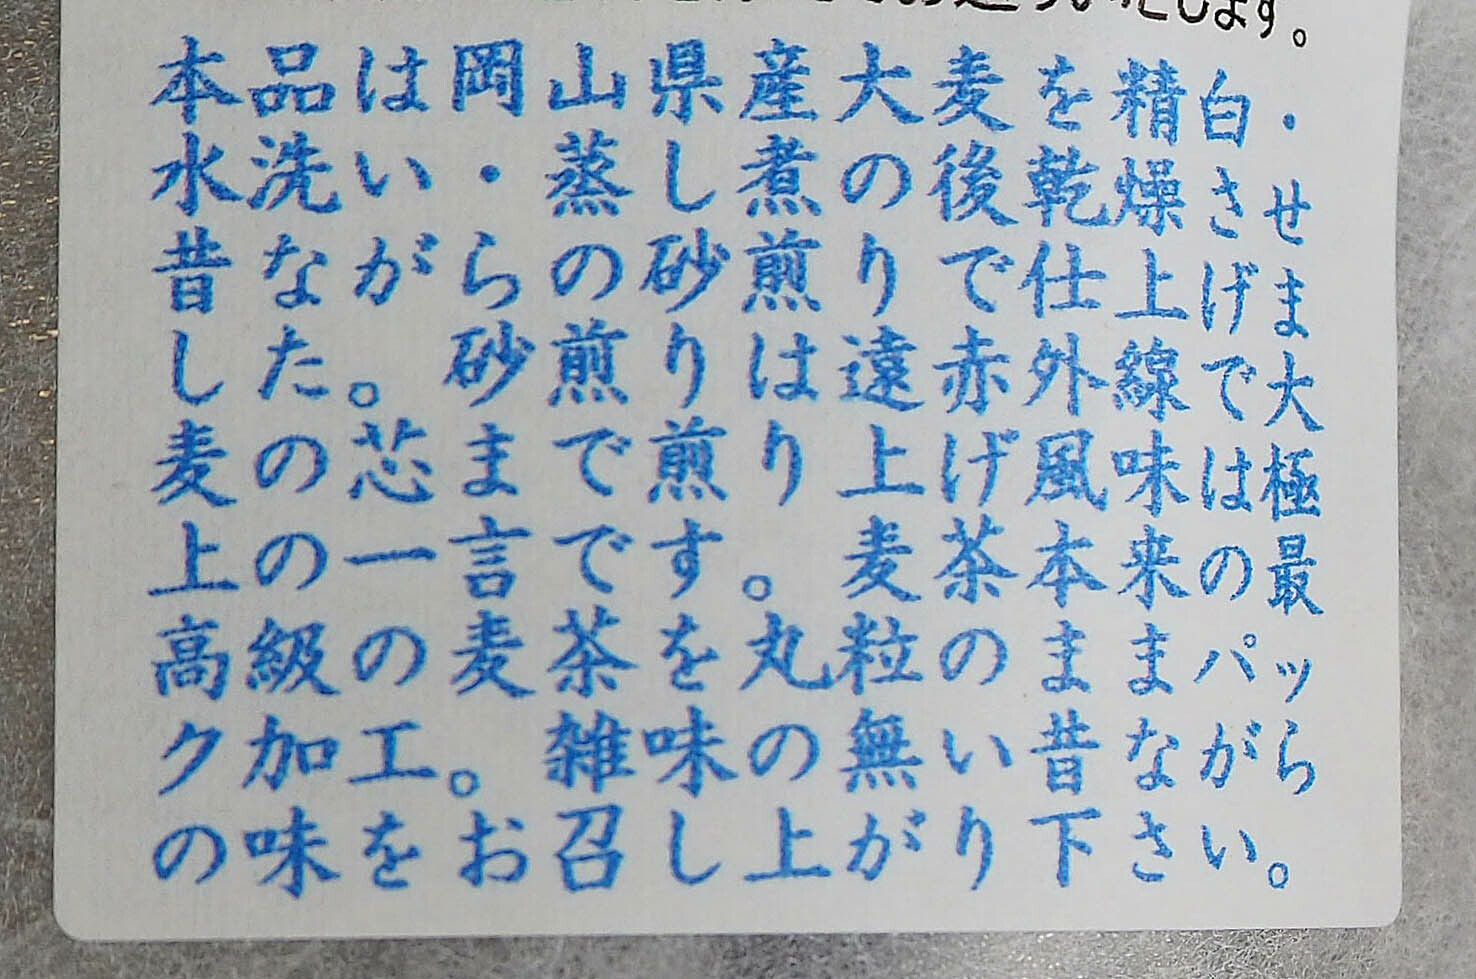 いたします。
本品は岡山県産大麦を精白・
水洗い・蒸し煮の後乾燥させ
昔ながらの砂煎りで仕上げま
した。砂煎りは遠赤外線で大
麦の芯まで煎り上げ風味は極
上の一言です。麦茶本来の最
高級の麦茶を丸粒のままパッ
ク加工。雑味の無い昔ながら
の味をお召し上がり下さい。